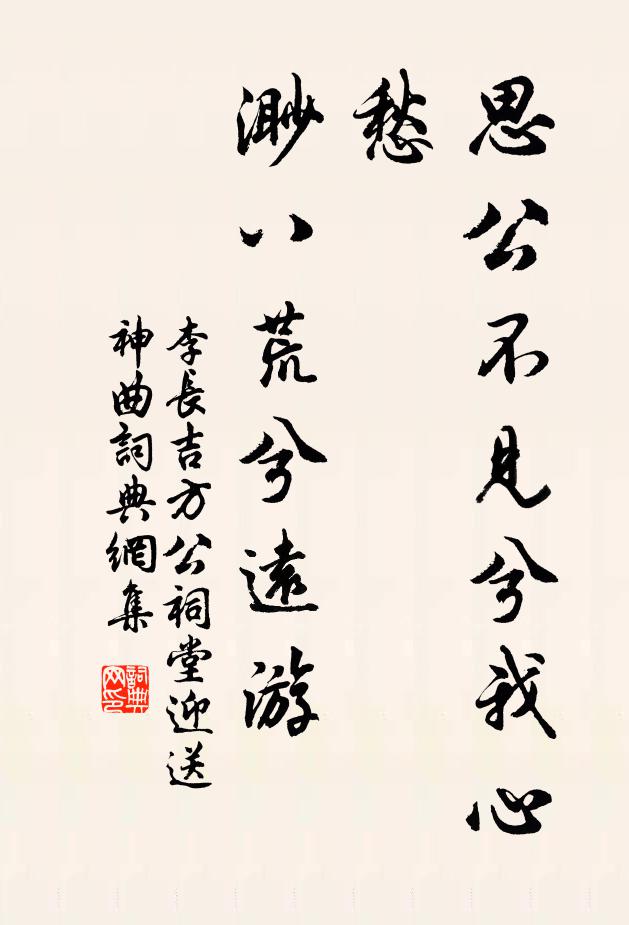 思公不見兮我心
愁
渺八荒兮遠游
李長吉方公祠堂迎送
神曲詞典網集
詞典网印